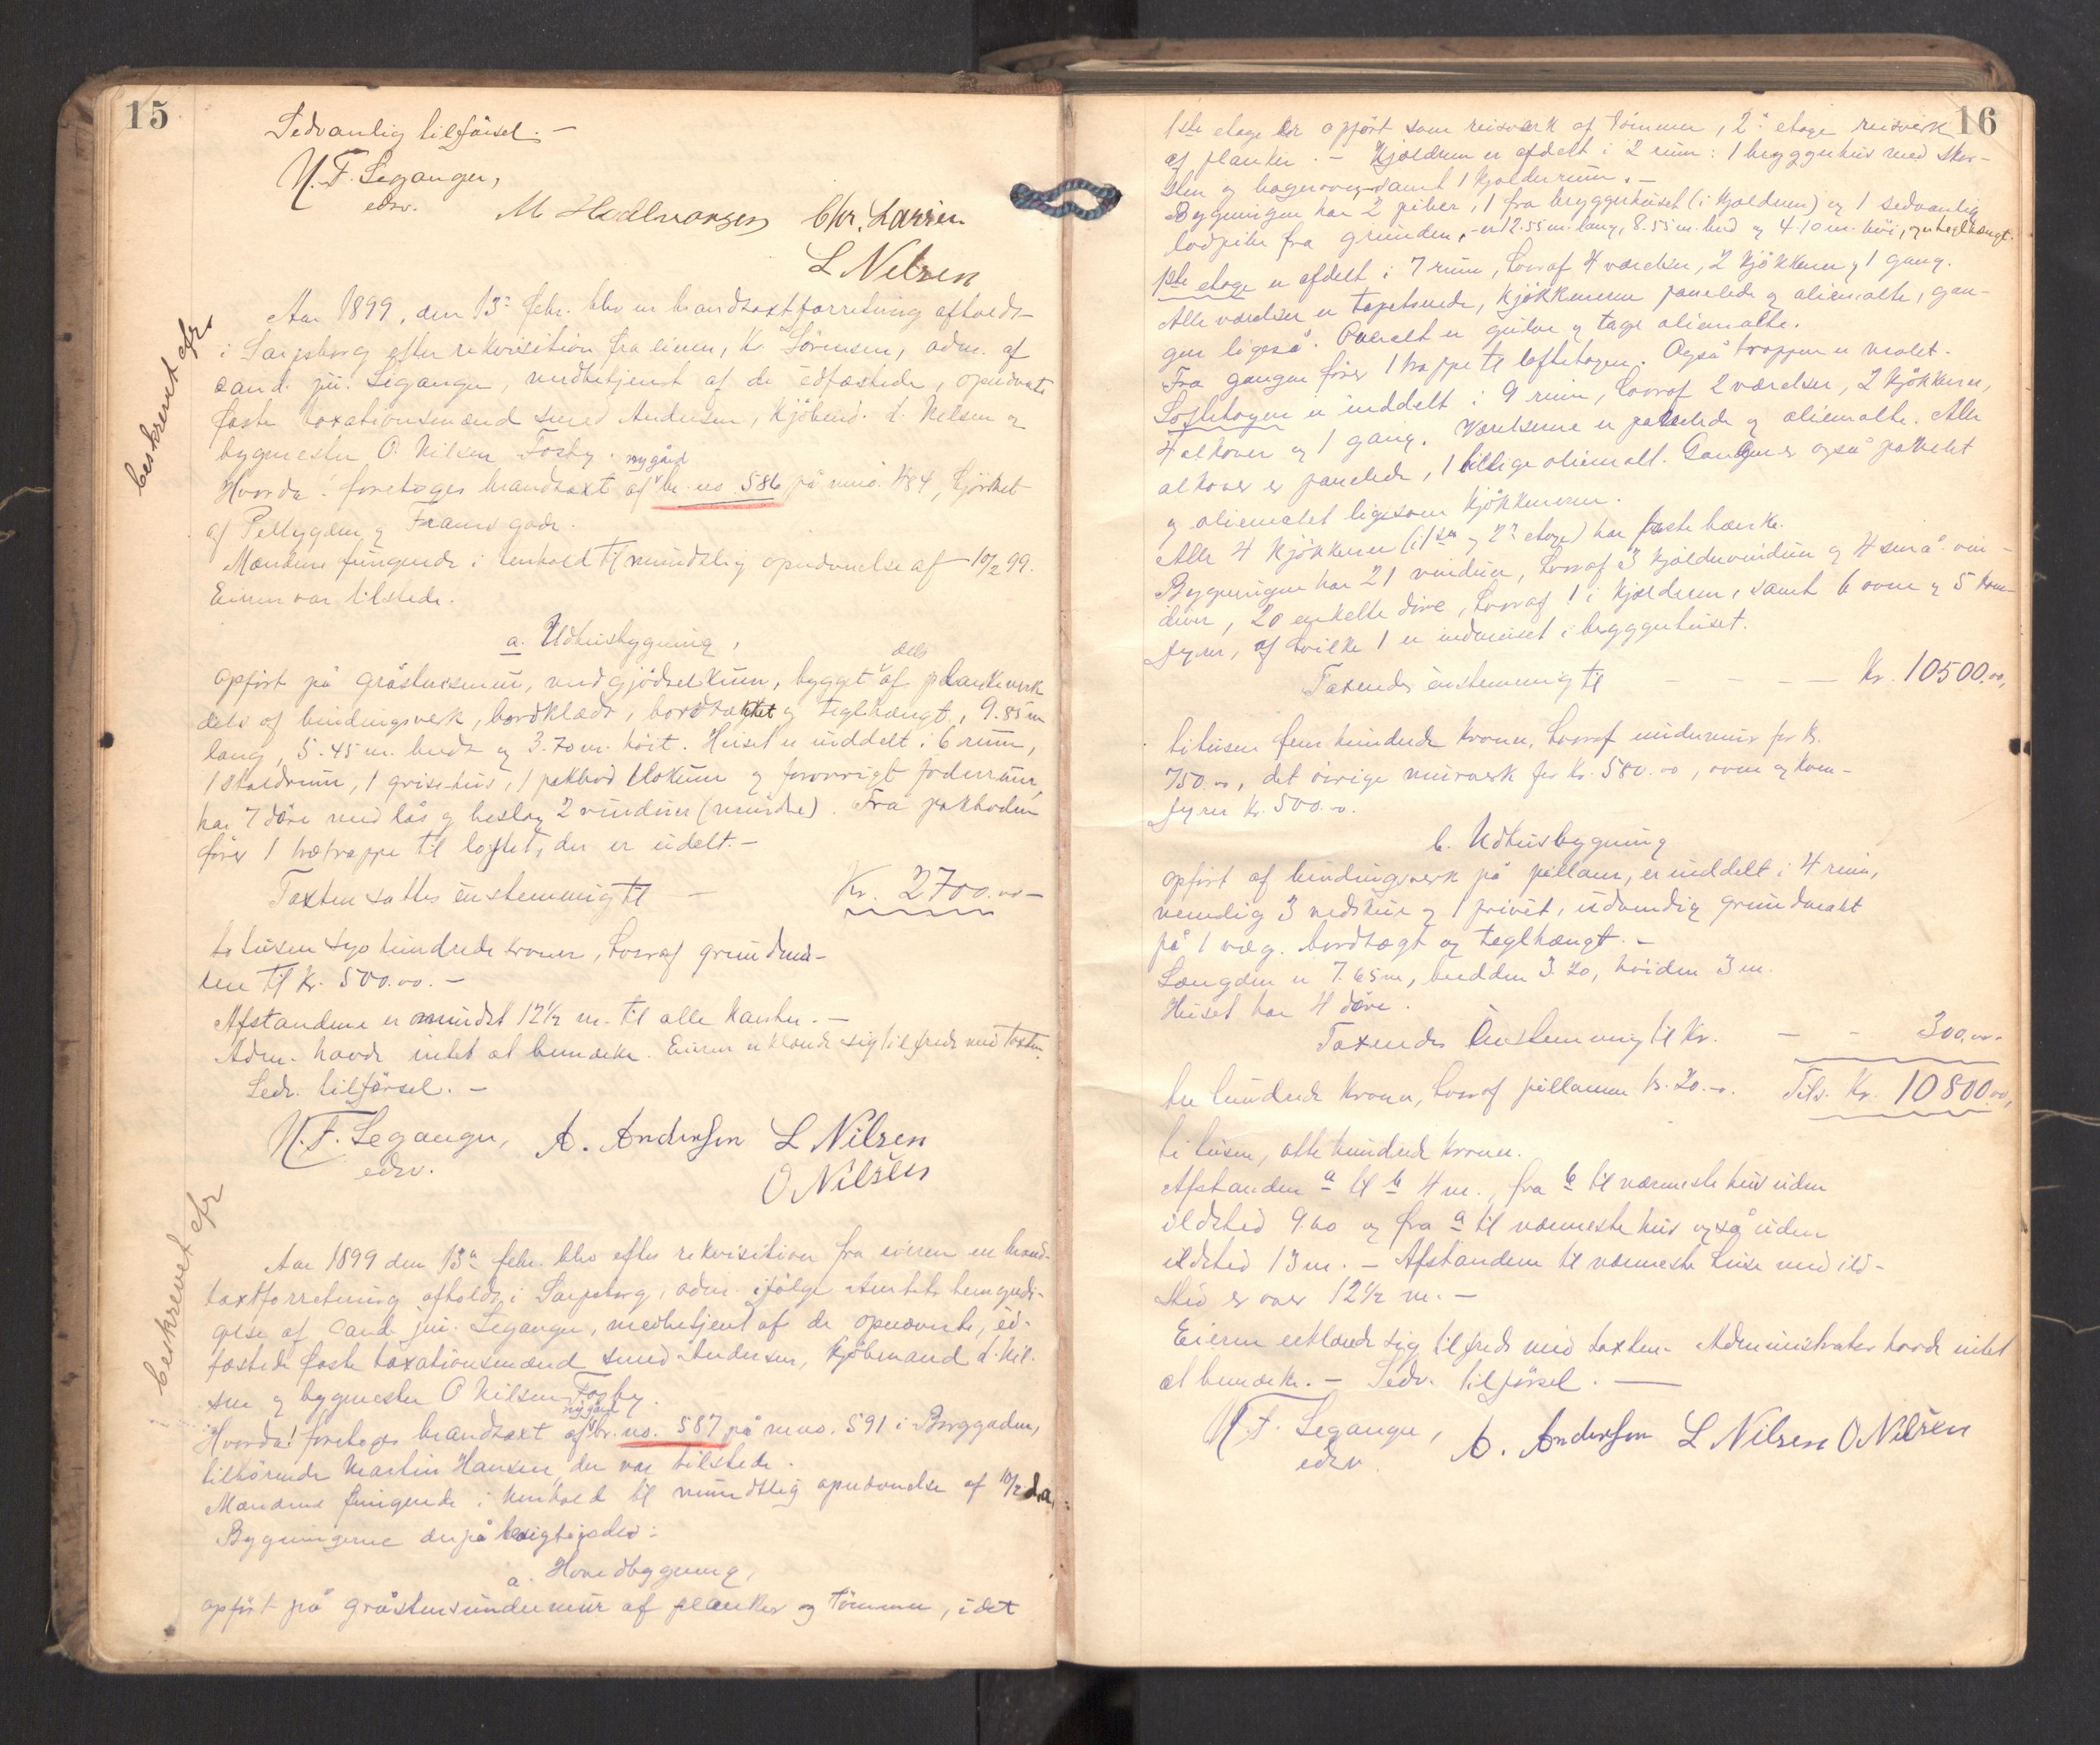 15
Sedvanlig tilførsel. –
N. F. Leganger,
edsv.
M Hadlvorsen Chr. Larsen
L Nilsen
beskrevet efr
Aar 1899, den 13de febr. blev en brandtaxtforretning afholdt
i Sarpsborg efter rekvisition fra eieren, Kr. Sörensen, adm. af
cand. jur. Leganger, medbetjent af de edfæstede, opnævnte
faste taxationsmænd smed Andersen, kjøbmd. L. Nilsen og
bygmester O. Nilsen Fosby.
Hvorda! foretoges brandtaxt af nygård br. no. 586 på mno. 484, hjörnet
af Pellygden og Frams gade.
Mændene fungerede i henhold til mundtlig opnævnelse af 10/2 99.
Eieren var tilstede.
a. Udhusbygning,
opført på gråstensmur, med gjødselkum, bygget dels af plankeverk
dels af bindingsverk, bordklædt, bordtækket og teglhængt, 9.85 m
lang, 5.45 m. bredt og 3.70 m. höit. Huset er inddelt i 6 rum,
1 staldrum, 1 grisehus, 1 pakbod 1 lokum og forøvrigt foderrum,
har 7 döre med lås og beslag 2 vinduer (mindre). Fra pakboden
förer 1 trætrappe til loftet, der er udelt. –
Taxten sattes enstemmig til – Kr. 2700.00 –
to tusen syv hundrede kroner, hvoraf grundmu-
ren til kr. 500.00. –
Afstandene er mindst 12½ m. til alle kanter. –
Adm. havde intet at bemærke. Eieren erklærede sig tilfreds med taxten.
Sedv. tilførsel. –
N. F. Leganger, A. Andersen L Nilsen
edsv. O Nilsen
beskrevet efr
Aar 1899 den 13de febr. blev efter rekvisition fra eieren en brand-
taxtforretning afholdt i Sarpsborg, adm. ifølge Amtets bemyndi-
gelse af Cand. jur. Leganger, medbetjent af de opnævnte, ed-
fæstede faste taxationsmænd smed Andersen, kjøbmand L. Nil-
sen og bygmester O Nilsen Fosby.
Hvorda! foretoges brandtaxt af nygård br. no. 587 på mno. 591 i Borggaden,
tilhørende Martin Hansen, der var tilstede.
Mændene fungerede i henhold til mundtlig opnævnelse af 10/2 d.a.
Bygningerne derpå besigtigedes:
a. Hovedbygning,
opført på gråstensundermur af planker og tömmer, idet
16
1ste etage er opført som reisværk af tömmer, 2den etage reisverk
af planker. – Kjælderen er afdelt i 2 rum: 1 bryggerhus med skor-
sten og bagerovn, samt 1 kjælderrum. –
Bygningen har 2 piber, 1 fra bryggerhuset (i kjælderen) og 1 sedvanlig
lodpibe fra grunden, – er 12.55 m. lang, 8.55 m. bred og 4.10 m. höi, og teglhængt.
1ste etage er afdelt i 7 rum, hvoraf 4 værelser, 2 kjökkener og 1 gang.
Alle værelser er tapetserede, kjökkenerne panelede og oliemalte, gan-
gen ligeså. Overalt er gulve og tage oliemalte.
Fra gangen förer 1 trappe til loftetagen. Også trappen er malet.
Loftetagen er inddelt i 9 rum, hvoraf 2 værelser, 2 kjökkener,
4 alkover og 1 gang. Værelserne er panelede og oliemalte. Alle
alkover er panelede, 1 tillige oliemalt. Gangen er også panelet
og oliemalet ligesom kjökkenerne.
Alle 4 kjökkener (i 1ste og 2den etage) har faste bænke.
Bygningen har 21 vinduer, hvoraf 3 kjældervinduer og 4 små vin-
duer, 20 enkelte döre, hvoraf 1 i kjælderen, samt 6 ovne og 5 kom-
fyrer, af hvilke 1 er indmuret i bryggerhuset.
Taxeredes enstemmig til – – – – Kr. 10500.00,
ti tusen fem hundrede kroner, hvoraf undermur for kr.
750.00, det övrige murverk for kr. 580.00, ovne og kom-
fyrer kr. 500.00.
b. Udhusbygning
opført af bindingsverk på pillarer, er inddelt i 4 rum,
nemlig 3 vedskur og 1 privet, udvendig grundmalt
på 1 væg. bordtægt og teglhængt. –
Længden er 7.65 m, bredden 3.20, höiden 3 m.
Huset har 4 döre.
Taxeredes Enstemmig til kr. – – 300.00.
tre hundrede kroner, hvoraf pillarerne kr. 20.00. Tils. Kr. 10800.00,
ti tusen, otte hundrede kroner.
Afstanden a til b 4 m., fra b til nærmeste hus uden
ildsted 9.60 og fra a til nærmeste hus også uden
ildsted 13 m. – Afstanden til nærmeste huse med ild-
sted er over 12½ m. –
Eieren erklærede sig tilfreds med taxten. Administrator havde intet
at bemærke. – Sedv. tilførsel. –
N. F. Leganger, A. Andersen L Nilsen O Nilsen
edsv.